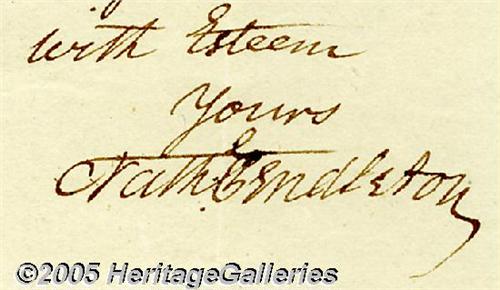 with Esteem
Yours
Nathl Pendleton
©2005 HeritageGalleries